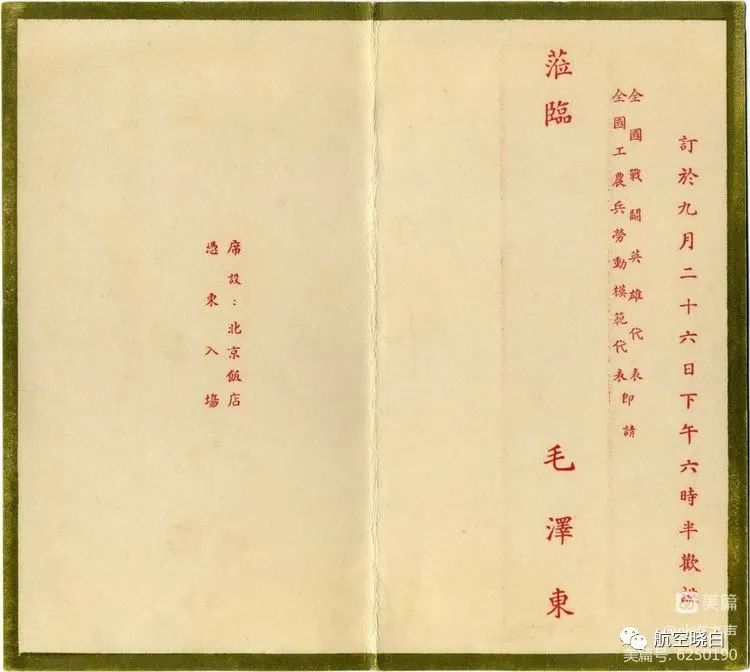 訂於九月二十六日下午六時半歡
全國戰鬪英雄代表
全國工農兵勞動模範代表
即請
蒞臨
毛澤東
席設：北京飯店
憑柬入塲
美篇
航空晓白
美篇号: 6250190